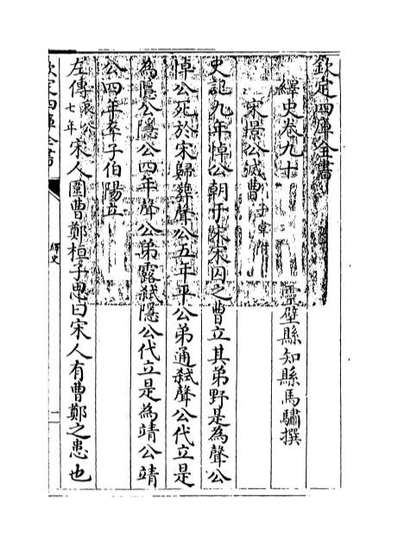 欽定四庫全書
繹史卷九十
靈壁縣知縣馬驌撰
宋景公滅曹
史記九年悼公朝于宋宋囚之曹立其弟野是為聲公
悼公死於宋歸葬聲公五年平公弟通弒聲公代立是
為隱公隱公四年聲公弟露弒隱公代立是為靖公靖
公四年卒子伯陽立
左傳哀公七年宋人圍曹鄭桓子思曰宋人有曹鄭之患也
欽定四庫全書
繹史
一